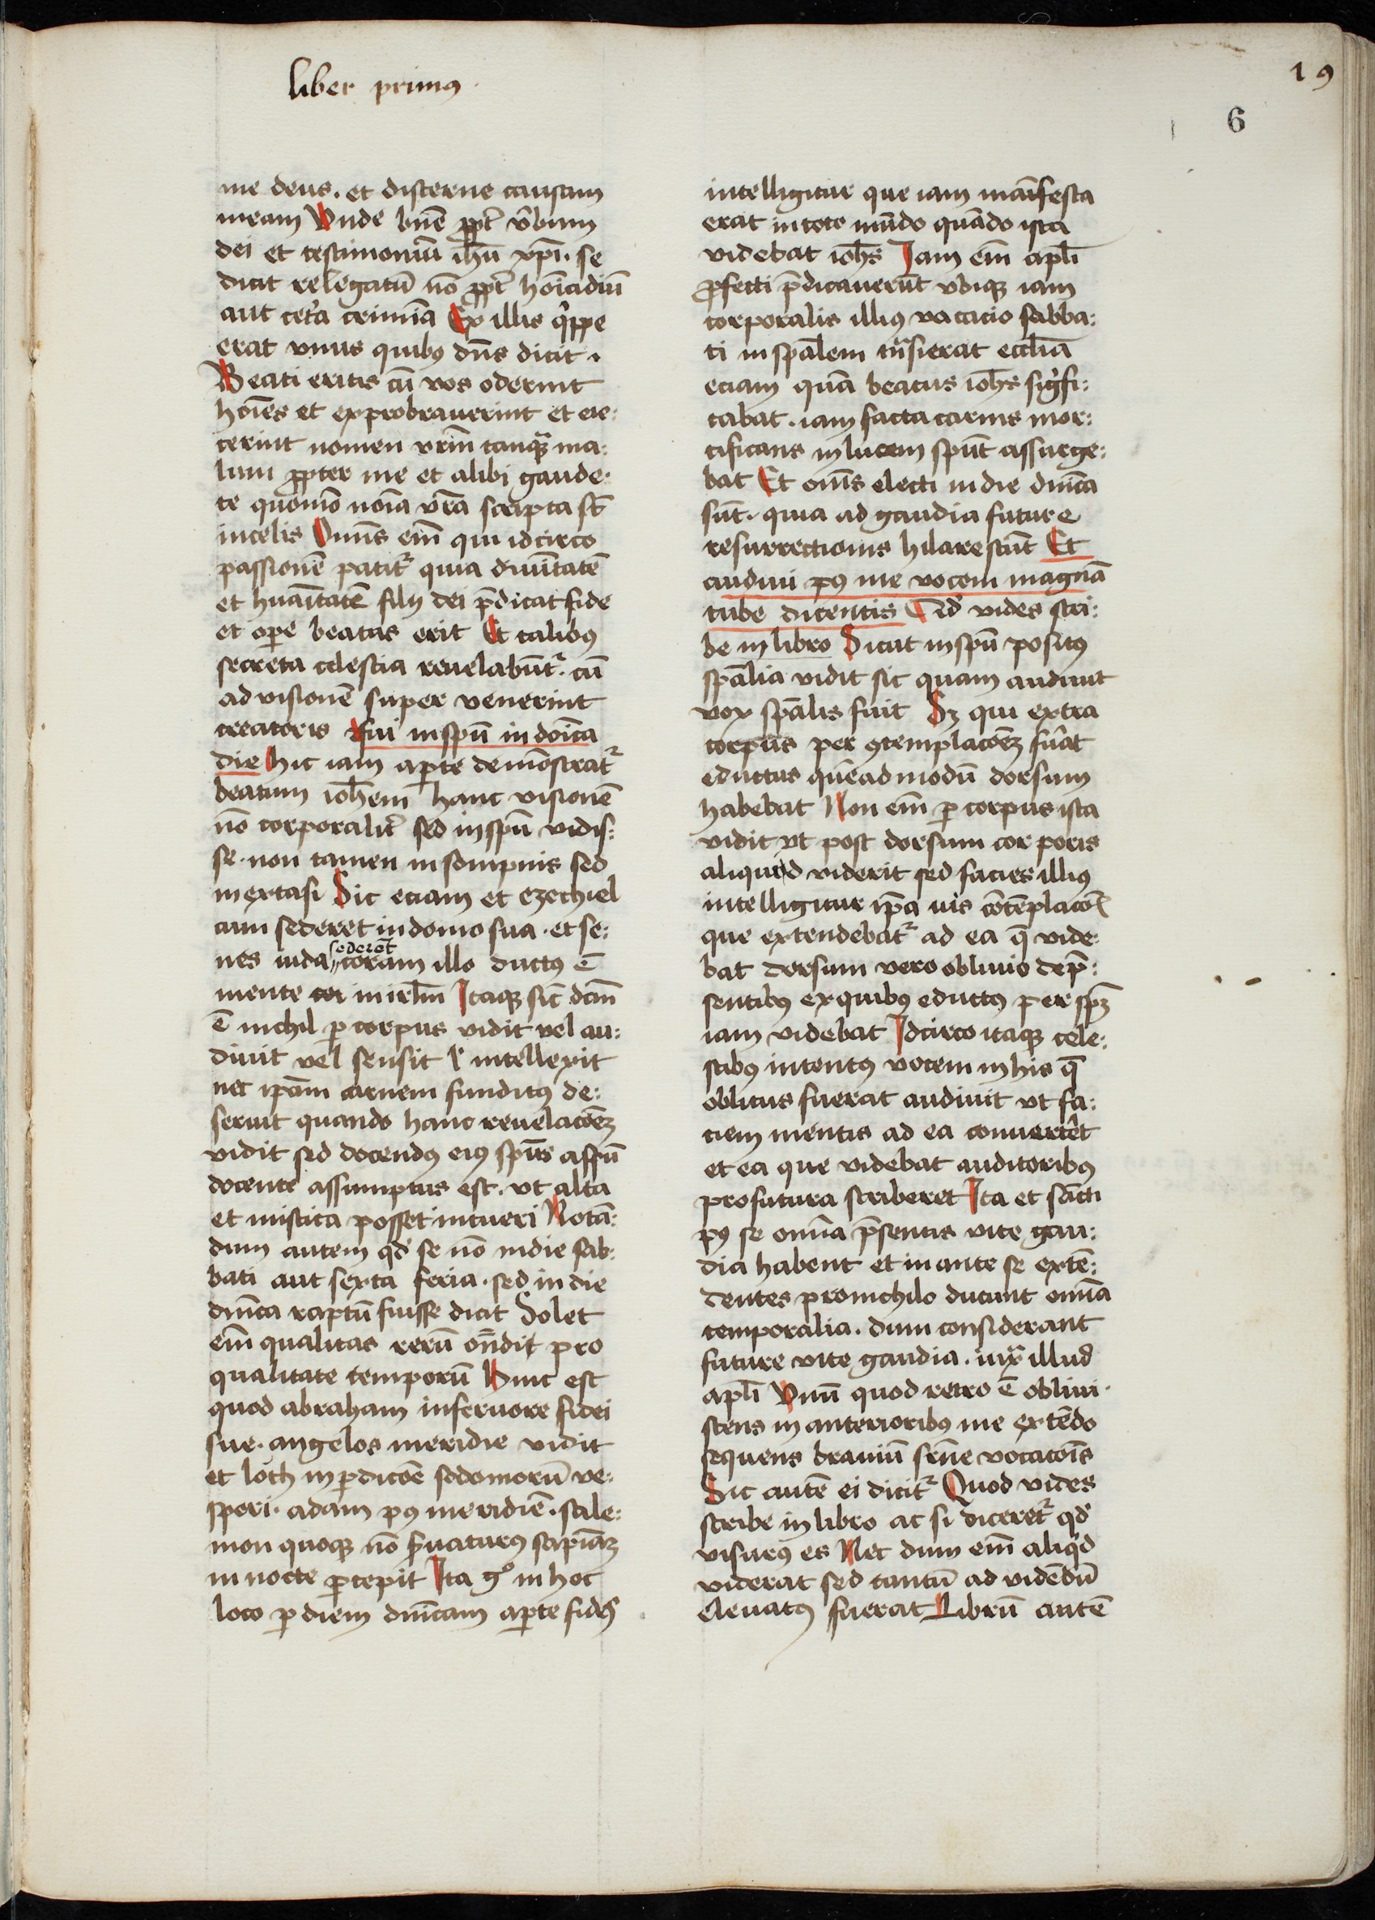 liber primus
19
6
me deus. et discerne causam
meam Vnde bn̄e ꝓpt̄ v̄bum
dei et testimoniū ih̄u xp̄i. se
dicit relegatū nō ꝓpt̄ hōicidiū
aut cet̾a crimīa Ex illis q̾ppe
erat vnus quibꝰ dn̄s dicit.
Beati eritis cū vos oderint
hōies et exprobrauerint et eie:
cerint nomen vr̄m tanqᷓ ma:
lum ꝓpter me et alibi gaude:
te quōmō nōīa vr̄a scripta st̄
in celis Om̄s em̄ qui idcirco
passionē patit᷑ quia diuītatē
et huāitatē filij dei p̄dicat fide
et oꝑe beatus erit Et talibꝰ
secreta celestia reuelabūt᷑. cū
ad visionē super venerint
creatoris fui in spū in dōica
die Hic iam aꝑte demōstrat᷑
beatum ioh̄em hanc visionē
nō corporalit̾ sed in spū vidis:
se. non tamen in sompnis sed
in extasi Sic etiam et ezechiel
cum sederet in domo sua. et se:
nes iuda sederēt coram illo ductꝰ ē
mente in ierl̄m Itaqꝫ sic̄ dc̄m
ē nichil ꝑ corpus vidit vel au:
diuit vel sensit l̾ intellexit
nec ip̄am carnem funditꝰ de:
seruit quando hanc reuelac̄oeꝫ
vidit sed docendꝰ eiꝰ sp̄us assū
docente assumptus est. vt alta
et mistica posset intueri Notā:
dum autem qd̾ se nō in die sab:
bati aut sexta feria. sed in die
dn̄ica raptū fuisse dicit Solet
em̄ qualitas rerū on̄dit pro
qualitate temporū Hinc est
quod abraham in feruore fidei
sue. angelos meridie vidit
et loth in ꝑdic̄oe sodomorū ve:
speri. adam pꝰ meridiē. sale:
mon quoqꝫ nō ẜuaturꝰ sapiāꝫ
in nocte ꝑcepit Ita gͦ in hoc
loco ꝑ diem dn̄icam aꝑte fides
intelligitur que iam maīfesta
erat in toto mūdo quādo ista
videbat ioh̄s Iam em̄ apl̄i
ꝓfecti p̄dicauerūt vbiqꝫ iam
corporalis illiꝰ vacacio sabba:
ti in sp̄alem tᷓnsierat eccl̄ia
etiam quā beatus ioh̄s sig̾fi:
cabat. iam facta carnis mor:
tificans in lucem sp̄us assurge:
bat Et om̄s electi in die dn̄ica
sūt. quia ad gaudia future
resurrectionis hilarescūt Et
audiui pꝰ me vocem magnā
tube dicentis Qd̾ vides scri:
be in libro Dicat in spū positꝰ
sp̄alia vidit sic quam audiuit
vox sp̄alis fuit Sꝫ qui extra
corpus per ꝯtemplac̄oeꝫ fu̾at
eductus quēadmodū dorsum
habebat Non em̄ ꝑ corpus ista
vidit vt post dorsum corporis
aliquid viderit sed facies illius
intelligitur ip̄a vis cōtēplac̄ois
que extendebat᷑ ad ea q̄ vide:
bat dorsum vero obliuio dep̄:
sentibꝰ ex quibꝰ eductꝰ per sp̄ꝫ
iam videbat Idcirco itaqꝫ cele:
stibꝰ intentꝰ vocem in his q̄
oblitus fuerat audiuit vt fa:
ciem mentis ad ea conuert̾et
et ea que videbat auditoribꝰ
profutura scriberet Ita et sācti
pꝰ se om̄ia p̄sentis vite gau:
dia habent et in ante se extē:
dentes pro nichilo ducunt om̄ia
temporalia. dum considerant
future vite gaudia. iuxᷓ illud
apl̄i Vnū quod retro ē obliui:
scens in anterioribꝰ me extēdo
sequens brauiū sr̄ne vocac̄ois
Sic autē ei dicit᷑ Quod vides
scribe in libro ac si diceret᷑ qd̾
visurꝰ es Nec dum em̄ aliq̾d
viderat sed tantū ad vidēdū
eleuatꝰ fuerat Librū autē